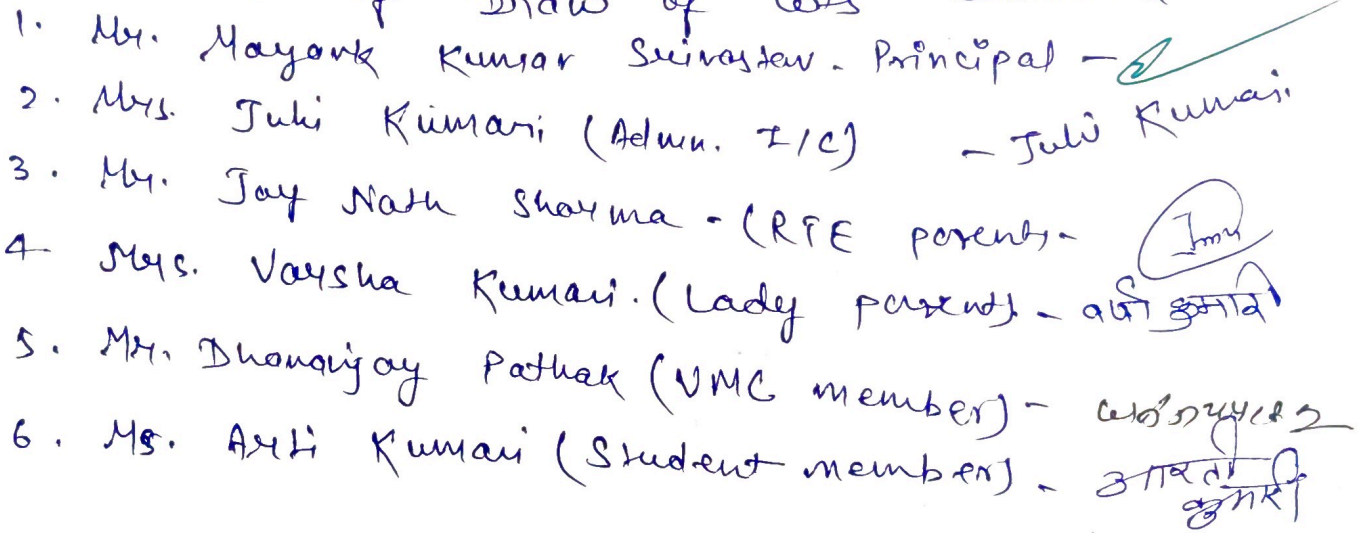 Draw of Lots
1. Mr. Mayank Kumar Srivastav - Principal -
2. Mrs. Juhi Kumari (Admn. I/C) - Juhi Kumari
3. Mr. Jay Nath Sharma - (RTE parents -
4 Mrs. Varsha Kumari. (Lady parents) - वर्षा कुमारी
5. Mr. Dhananjay Pathak (VMC member) -
6. Ms. Arti Kumari (Student member) - आरती कुमारी